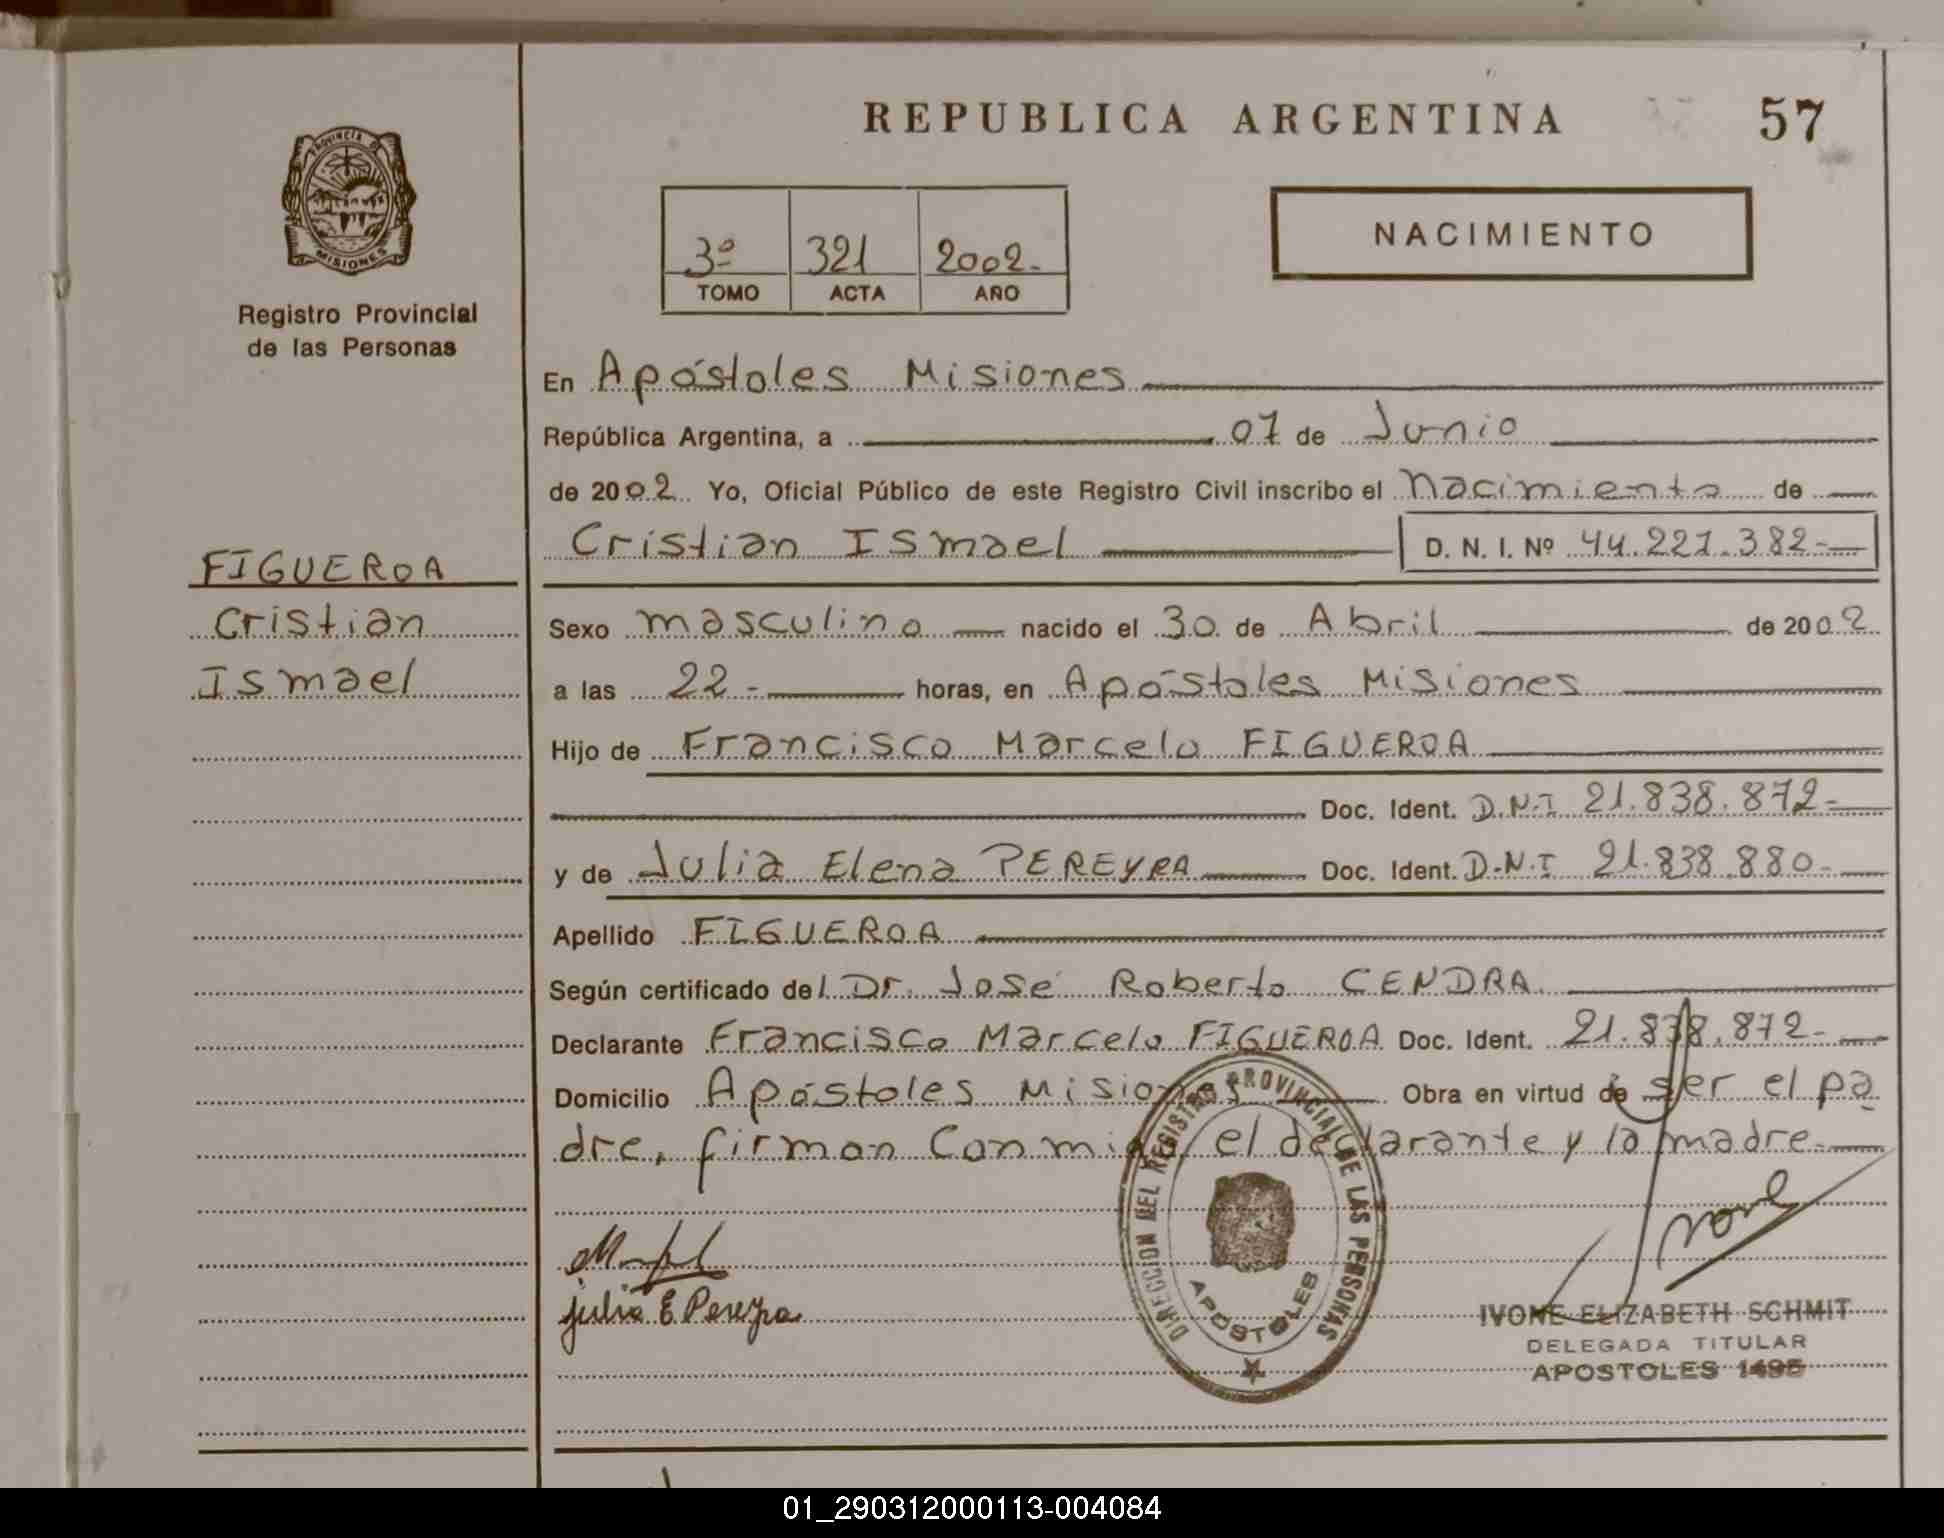 REPUBLICA ARGENTINA
57
PROVINCIA DE
MISIONES
Registro Provincial
de las Personas
3º 321 2002.-
TOMO ACTA AÑO
NACIMIENTO
En Apóstoles Misiones
República Argentina, a 07 de Junio
de 2002. Yo, Oficial Público de este Registro Civil inscribo el Nacimiento de
Cristian Ismael D. N. I. Nº 44.221.382-
FIGUEROA
Cristian
Ismael
Sexo masculino nacido el 30 de Abril de 2002
a las 22- horas, en Apóstoles Misiones
Hijo de Francisco Marcelo FIGUEROA
Doc. Ident. D.N.I 21.838.872-
y de Julia Elena PEREYRA Doc. Ident. D.N.I 21.838.880-
Apellido FIGUEROA
Según certificado del Dr. José Roberto CENDRA.
Declarante Francisco Marcelo FIGUEROA Doc. Ident. 21.838.872-
Domicilio Apóstoles Misiones Obra en virtud de ser el pa
dre, firman Conmigo, el declarante y la madre.-
julia E Pereyra
DIRECCION DEL REGISTRO PROVINCIAL DE LAS PERSONAS
APOSTOLES
Ivone
IVONE ELIZABETH SCHMIT
DELEGADA TITULAR
APOSTOLES 1495
01_290312000113-004084